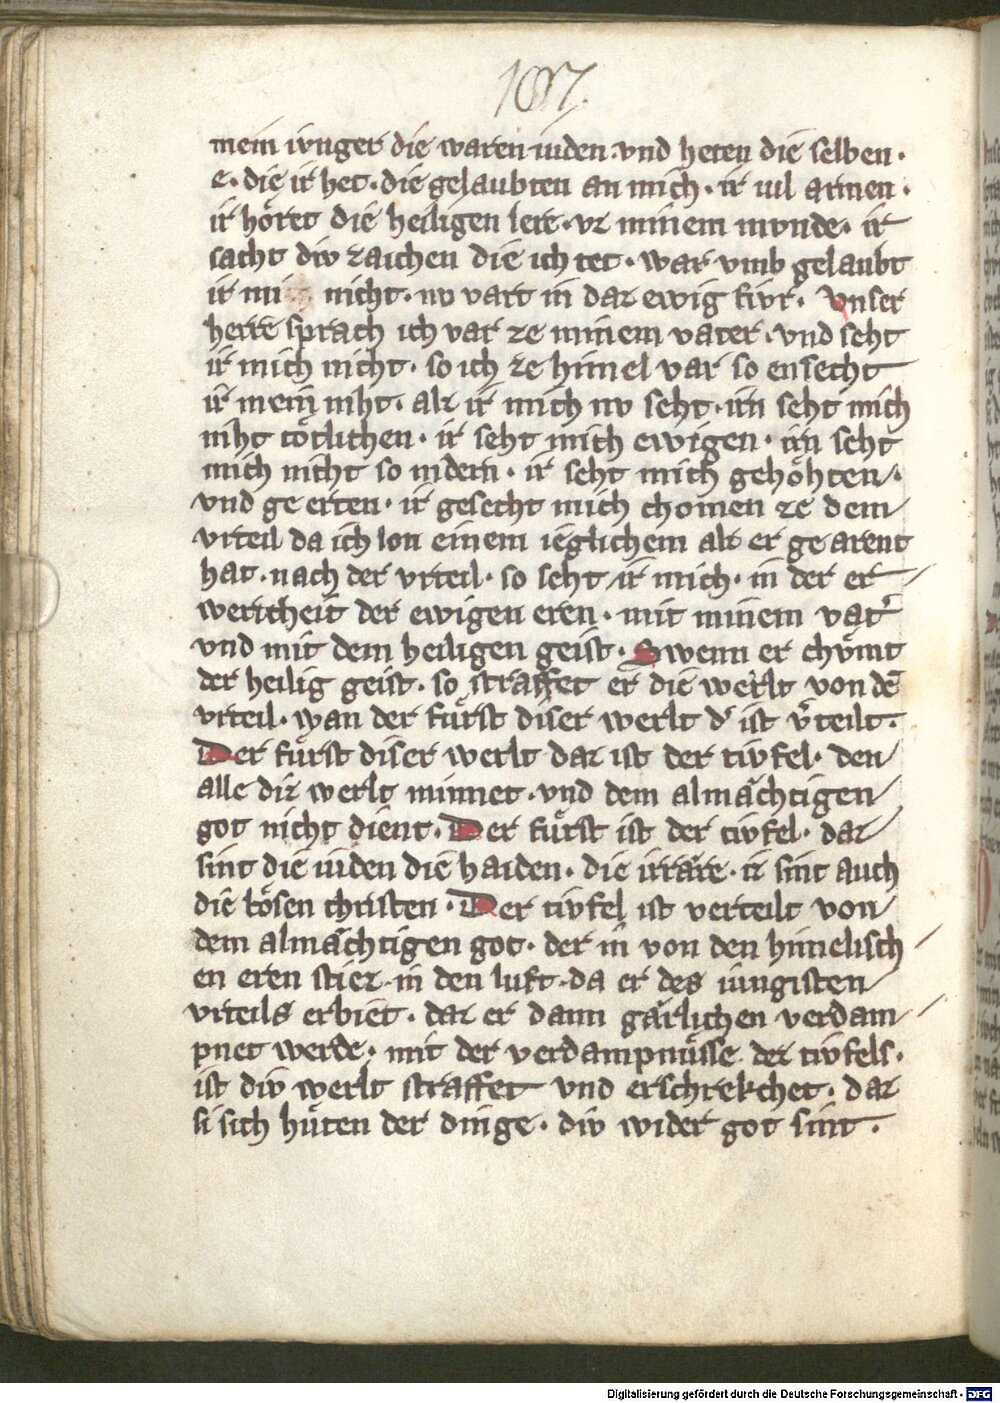 107.
mein ivnger die waren iuden·vnd heten die selben·
e·die ir het·die gelaubten an mich·ir uil armen·
ir hoͤret die heiligen lere·vz minem mvnde·ir
sacht div zaichen die ich tet·war vmb gelaubt
ir mi nicht·nv vart in daz ewig fivr·Vnser
herre sprach ich var ze minem vater·vnd seht
ir mich nicht·so ich ze himel var so ensecht
ir mein niht·alz ir mich nv seht·irn seht mich
niht toͤtlichen·ir seht mich ewigen·irn seht
mich nicht so nidern·ir seht mich gehoͤhten·
vnd ge erten·ir gesecht mich chomen ze dem
vrteil da ich lon einem ieglichem alz er ge arent
hat·nach der vrteil·so seht ir mich·in der er
wericheit der ewigen eren·mit minem vat̾
vnd mit dem heiligen geist·Swenn er chvͤmt
der heilig geist·so straffet er die werlt von dē
vrteil·wan der fuͤrst diser werlt d̾ ist v̾teilt·
Der fuͤrst diser werlt daz ist der tivfel·den
alle dir werlt minnet·vnd dem almaͤchtigen
got nicht dient·Der fuͤrst ist der tivfel·daz
sint die iuden die haiden·die irraͤre·iz sint auch
die boͤsen christen·Der tivfel ist verteilt von
dem almaͤchtigen got·der in von den himelisch
en eren stiez·in den luft·da er des iungisten
vrteils erbiet·daz er dann gaͤrlichen verdam
pnet werde·mit der verdampnuͤsse dez tivfels·
ist div werlt straffet vnd erschrekchet·daz
si sich huͤten der dinge·div wider got sint·
Digitalisierung gefördert durch die Deutsche Forschungsgemeinschaft · DFG